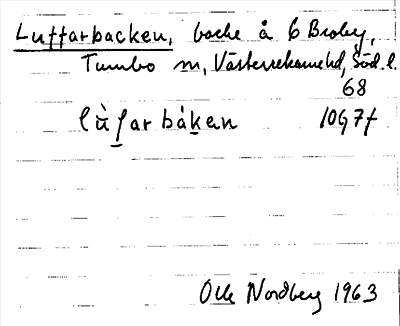 Luffarbacken, backe å 6 Broby,
Tumbo sn, Västerrekarnehd, Södl.
68
lù̀f̲ar bák̲en 10G7f
Olle Nordberg 1963